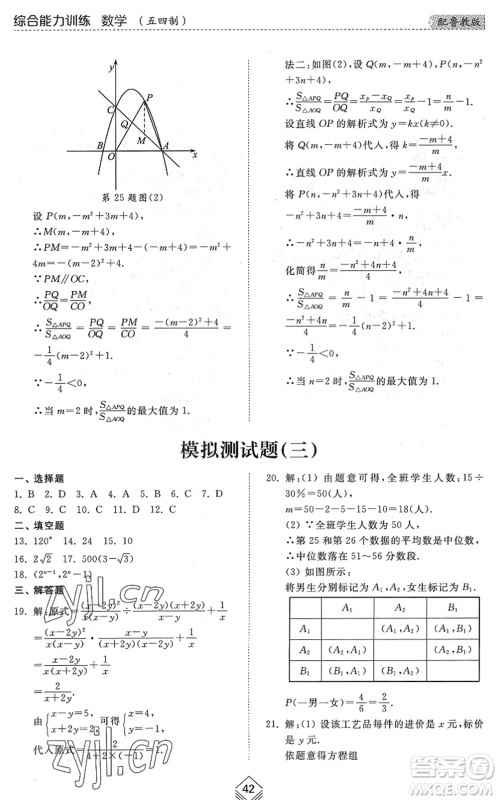 综合能力训练 数学 (五四制)
配鲁教版
y
P
C
Q
M
B O A x
第 25 题图(2)
设 P(m,-m²+3m+4),
∴M(m,-m+4),
∴PM=-m²+3m+4-(-m+4)=-m²+4m=-(m-2)²+4.
∵PM∥OC,
∴PQ/OQ=PM/CO,
∴S△APQ/S△AOQ=PQ/OQ=PM/CO=(-(m-2)²+4)/4=
-1/4(m-2)²+1.
∵-1/4<0,
∴当 m=2 时,S△APQ/S△AOQ的最大值为 1.
法二:如图(2),设 Q(m,-m+4),P(n,-n²+3n+4),
∴S△APQ/S△AOQ=PQ/OQ=(xP-xQ)/xQ=xP/xQ-1=n/m-1.
设直线 OP 的解析式为 y=kx(k≠0).
将点 Q(m,-m+4)代入,得 k=(-m+4)/m,
∴直线 OP 的解析式为 y=(-m+4)/m x.
将 P(n,-n²+3n+4)代入,得
-n²+3n+4=(-m+4)/m·n,
化简得n/m=(-n²+4n+4)/4,
∴S△APQ/S△AOQ=n/m-1=(-n²+4n+4)/4-1=
(-n²+4n)/4=-1/4(n-2)²+1.
∵-1/4<0,
∴当 n=2 时,S△APQ/S△AOQ的最大值为 1.
模拟测试题(三)
一、选择题
1. B 2. D 3. A 4. B 5. A 6. D 7. D
8. C 9. C 10. D 11. C 12. B
二、填空题
13. 120° 14. 24 15. 10
16. 2√2 17. 500(3-√3)
18. (2ⁿ⁻¹,2ⁿ-1)
三、解答题
19. 解:原式=(x-2y)²/x(x-y)÷(x-2y)(x+2y)/(x-y)(x+2y)+1/x
=(x-2y)²/x(x-y)·(x-y)(x+2y)/(x-2y)(x+2y)+1/x
=(x-2y)/x+1/x
由{x-y=5, x+2y=2,得{x=4, y=-1.
20. 解:(1) 由题意可得,全班学生人数:15÷
30%=50(人),
m=50-2-5-15-10=18(人).
(2) ∵全班学生人数有 50 人,
∴第 25 和第 26 个数据的平均数是中位数,
∴中位数落在 51~56 分数段.
(3) 如图所示:
将男生分别标记为 A₁,A₂,女生标记为 B₁.
A₁ A₂ B₁
A₁ (A₁,A₂) (A₁,B₁)
A₂ (A₂,A₁) (A₂,B₁)
B₁ (B₁,A₁) (B₁,A₂)
P(一男一女)=4/6=2/3.
21. 解:(1) 设该工艺品每件的进价是 x 元,标价是 y 元.
依题意得方程组
42
zyjl.cn